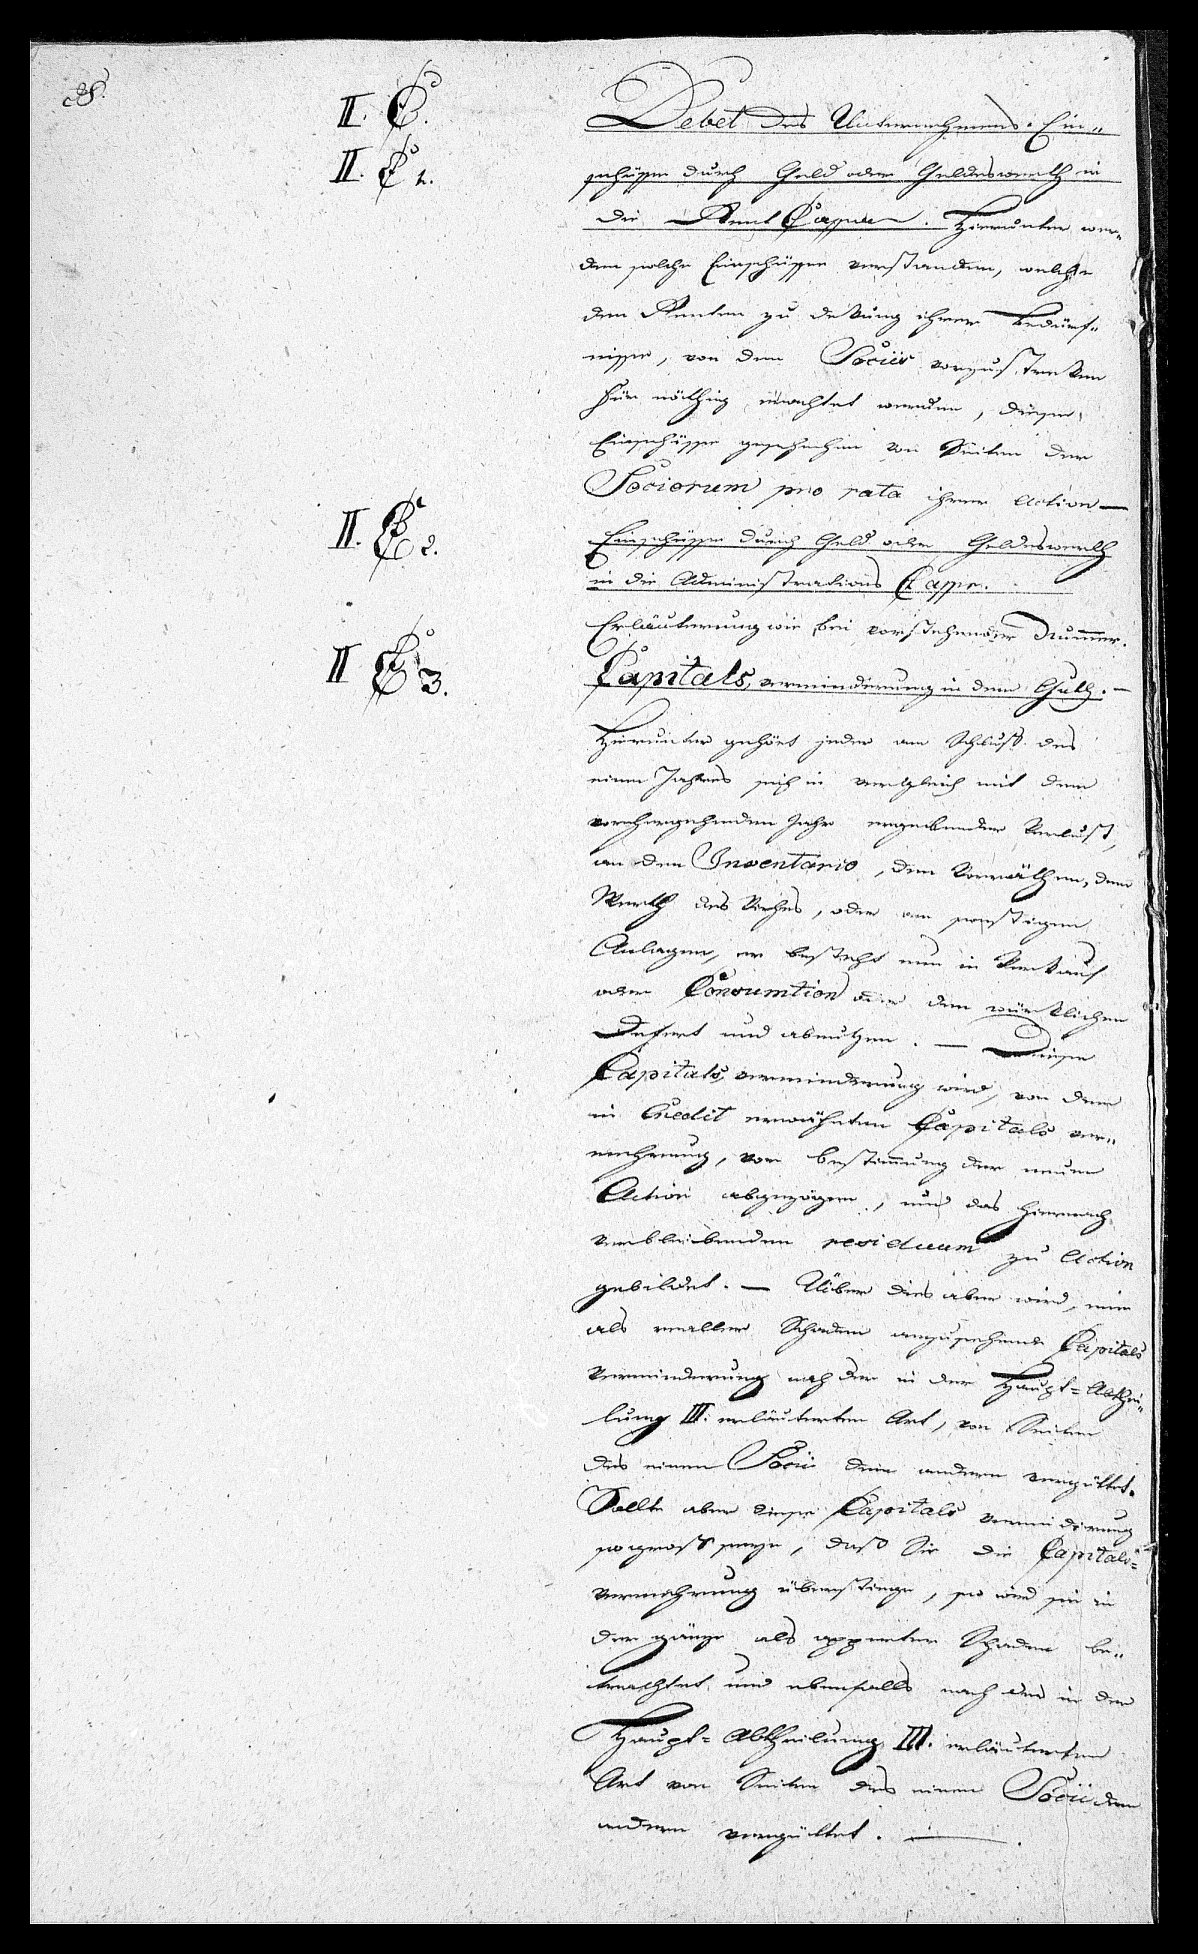 II. C.
Debet des Unternehmens. Ein-
II. C 1.
schüsse durch Geld oder Geldeswerth in
die Rent Cassen. Hierunter wer-
den solche Einschüsse verstanden, welche
den Renten zu dekung ihrer bedürf-
nisse, von den Sociis vorzustreken
für nöthig erachtet werden, diese
Einschüsse geschehen von Seiten der
Sociorum pro rata ihrer Action —
II. C 2.
Einschüsse durch Geld oder Geldeswerth
in die Administrations Casse.
Erläuterung wie bei vorstehender Nummer.
II C 3.
Capitals verminderung in dem Guth. —
Hierunter gehört jeder am Schluß des
einen Jahres sich in vergleich mit dem
vorhergehenden Jahr ergebender Verlust,
an den Inventario, den Vorräthen, dem
Werth des Viehes, oder an sonstigen
Anlagen, er besteht nun in Verkauf
oder Consumtion oder dem würklichen
Defect und abnutzen. — Diese
Capitals verminderung wird, von der
in Credit erwähnten Capitals ver-
mehrung, vor bestimmung der neuen
Action abgezogen, und das hiernach
verbleibenden residuum zu Action
gebildet. — Über dies aber wird, eine
als realler Schaden anzusehende Capitals
Verminderung nach der in der Haupt-Abthei-
lung III. erläuterten Art, von Seiten
des einen Socii dem andern vergüttet.
Sollte aber diese Capitals verminderung
so gross seyn, daß Sie die Capitals-
vermehrung überstiege, so wird sie in
der gänze als Schaden be-
trachtet und ebenfalls nach der in der
Haupt-Abtheilung III. erläuterten
Art von Seiten des einen Socii dem
andern vergüttet. —